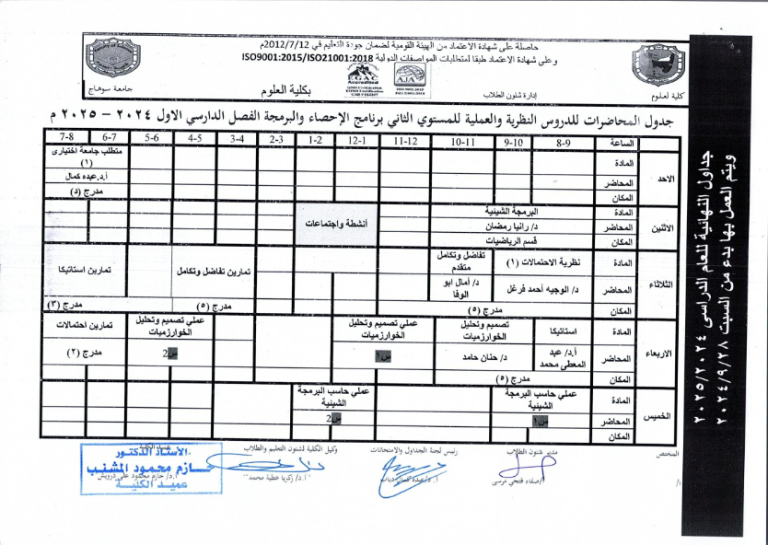 حاصلة على شهادة الاعتماد من الهيئة القومية لضمان جودة التعليم في 2012/7/12م
وعلى شهادة الاعتماد طبقا لمتطلبات المواصفات الدولية ISO9001:2015/ISO21001:2018
EGAC
Accredited
AJA
كلية العلوم
إدارة شئون الطلاب
بكلية العلوم
جامعة سوهاج
جدول المحاضرات للدروس النظرية والعملية للمستوي الثاني برنامج الإحصاء والبرمجة الفصل الدارسي الاول ٢٠٢٤ - ٢٠٢٥ م
الساعة 8-9 9-10 10-11 11-12 12-1 1-2 2-3 3-4 4-5 5-6 6-7 7-8
الاحد
المادة متطلب جامعة اختيارى (١)
المحاضر أ.د.عبده كمال
المكان مدرج (د)
الاثنين
المادة البرمجة الشيئية
المحاضر د/ رانيا رمضان
المكان قسم الرياضيات
أنشطة واجتماعات
الثلاثاء
المادة نظرية الاحتمالات (١) تفاضل وتكامل متقدم تمارين تفاضل وتكامل تمارين استاتيكا
المحاضر د/ الوجيه أحمد فرغل د/ أمال ابو الوفا
المكان مدرج (٥) مدرج (٥) مدرج (٣)
الاربعاء
المادة استاتيكا تصميم وتحليل الخوارزميات عملي تصميم وتحليل الخوارزميات عملي تصميم وتحليل الخوارزميات تمارين احتمالات
المحاضر أ.د/ عبد المعطى محمد د/ حنان حامد س1 س2 مدرج (٢)
المكان مدرج (٥)
الخميس
المادة عملي حاسب البرمجة الشيئية عملي حاسب البرمجة الشيئية
المحاضر س1 س2
المكان
المختص
مدير شئون الطلاب
رئيس لجنة الجداول والامتحانات
وكيل الكلية لشئون التعليم والطلاب
صفاء فتحي مرسى
أ.د/ زكريا عطية محمد
الأستاذ الدكتور
حازم محمود المشنب
عميد الكلية
أ.د/ حازم محمود على درويش
جداول النهائية للعام الدراسى ٢٠٢٥/٢٠٢٤
ويتم العمل بها بدء من السبت ٢٠٢٤/٩/٢٨